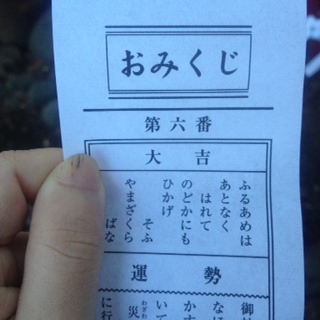 おみくじ
第六番
大吉
ふるあめは
あとなく
はれて
のどかにも
ひかげ
そふ
やまざくら
ばな
運勢